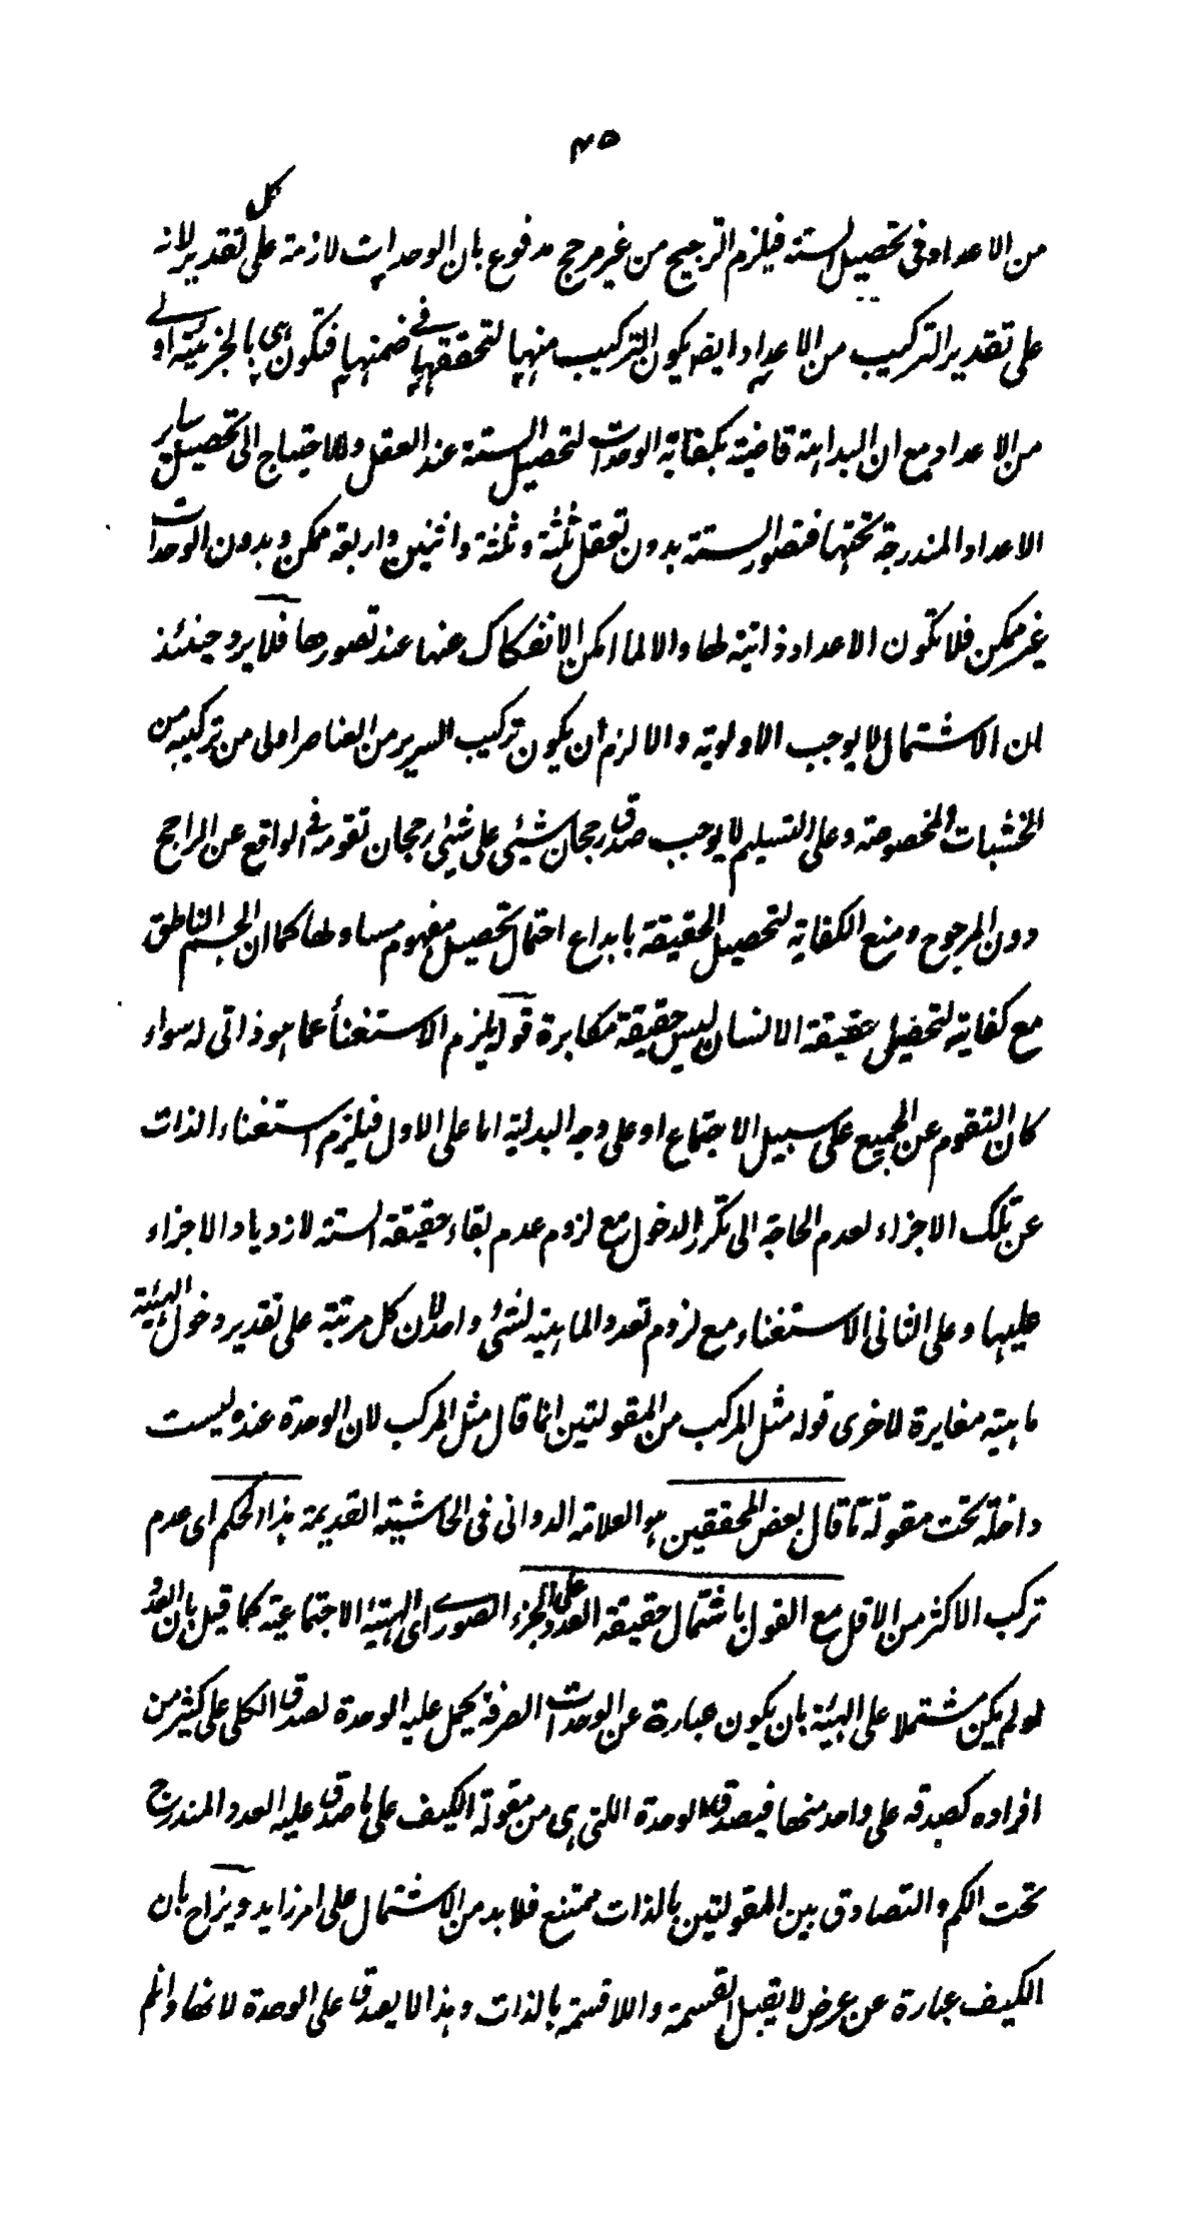 ٤٥
من الاعداد فى تحصيل الستة فيلزم الترجيح من غير مرجح مدفوع بان الوحدات لازمة على كل تقدير لانه
على تقدير التركيب من الاعداد ايضا يكون التركيب منها لتحققها فى ضمنها فتكون هى بالجزئية اولى
من الاعداد مع ان البداهة قاضية بكفاية الوحدات لتحصيل الستة عند العقل ولا احتياج الى تحصيل ساير
الاعداد المندرجة تحتها فتصور الستة بدون تعقل ثلثة وثلثة واثنين واربعة ممكن وبدون الوحدات
غير ممكن فلا تكون الاعداد ذاتية لها والا لما امكن الانفكاك عنها عند تصورها فلا يرد حينئذ
ان الاشتمال لا يوجب الاولوية والا لزم ان يكون تركيب السرير من العناصر اولى من تركيبه من
الخشبات المخصوصة وعلى التسليم لا يوجب صدق رجحان شيئى على شيئى رجحان تقومه فى الواقع عن الراجح
دون المرجوح ومنع الكفاية لتحصيل الحقيقة بابداع احتمال تحصيل مفهوم مساو لها كما ان الجسم الناطق
مع كفاية لتحصيل حقيقة الانسان ليس حقيقة مكابرة قوله يلزم الاستغنأ عما هو ذاتى له سواء
كان التقوم عن الجميع على سبيل الاجتماع او على وجه البدلية اما على الاول فيلزم استغناء الذات
عن تلك الاجزاء لعدم الحاجة الى تكرر الدخول مع لزوم عدم بقاء حقيقة الستة لازدياد الاجزاء
عليها وعلى الثانى الاستغناء مع لزوم تعدد الماهية لشئ واحد لان كل مرتبة على تقدير دخول الهيئة
ماهية مغايرة لاخرى قوله مثل المركب من المقولتين انما قال مثل المركب لان الوحدة عنده ليست
داخلة تحت مقولة ما قال بعض المحققين هو العلامة الدوانى فى الحاشية القديمة هذا الحكم اى عدم
تركب الاكثر من الاقل مع القول باشتمال حقيقة العدد على الجزء الصورى اى الهيئة الاجتماعية كما قيل بان العدد
لو لم يكن مشتملا على الهيئة بان يكون عبارة عن الوحدات الصرفة يحمل عليه الوحدة لصدق الكلى على كثير من
افراده كصدقه على واحد منها فيصدق الوحدة اللتى هى من مقولة الكيف على ما صدق عليه العدد المندرج
تحت الكم والتصادق بين المقولتين بالذات ممتنع فلا بد من الاشتمال على امر زايد ويزاح بان
الكيف عبارة عن عرض لا يقبل القسمة واللاقسمة بالذات وهذا لا يصدق على الوحدة لانها وان لم